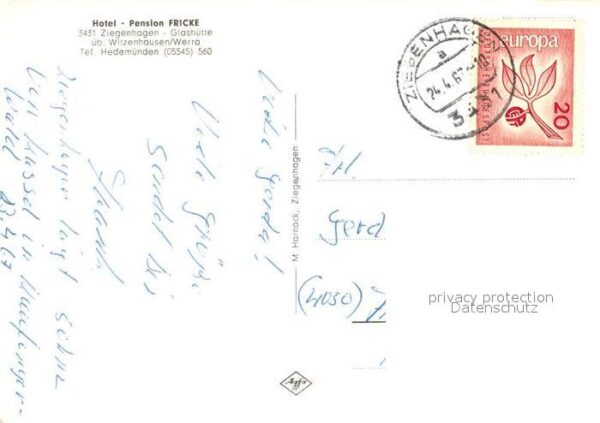 Hotel - Pension FRICKE
3431 Ziegenhagen - Glashütte
üb. Witzenhausen/Werra
Tel. Hedemünden (05545) 560
Liebe Gerda!
Viele Grüße
sendet Dir
Ziegenhagen liegt
von Kassel in
Wald 23.4.67
M. Harrack, Ziegenhagen
Agfa
ZIEGENHAGEN
a
24.4.67
3431
europa
DEUTSCHE BUNDESPOST
CEPT
20
Frl.
Gerd
(4050)
privacy protection
Datenschutz